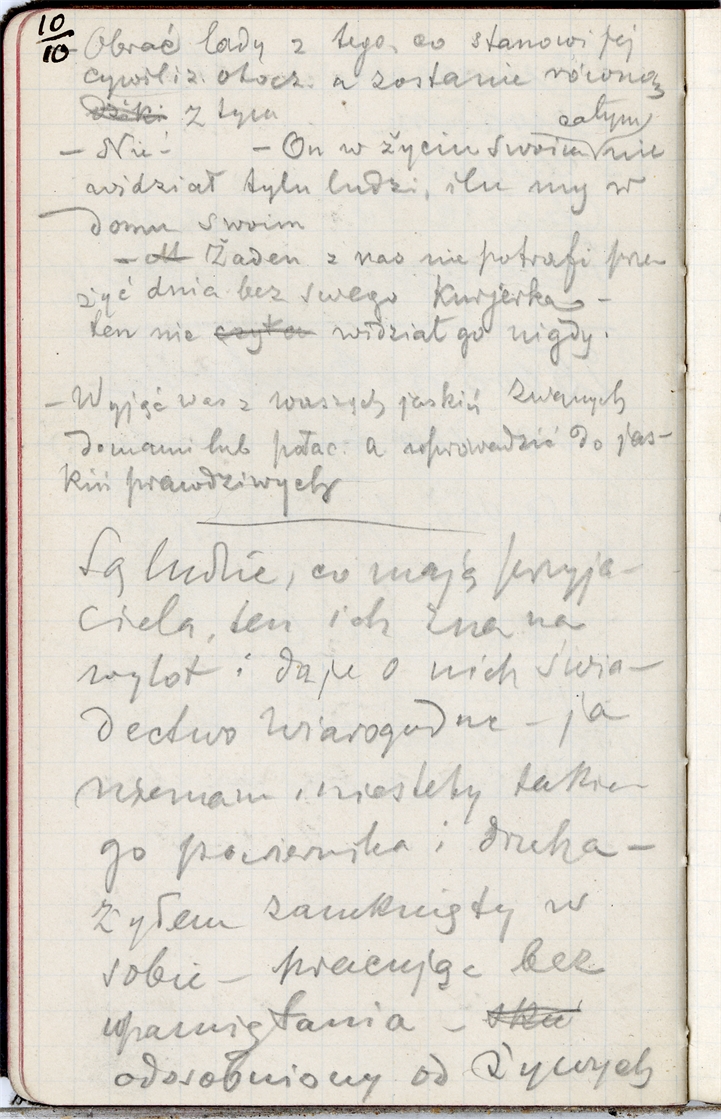 10
10
- Obrać lady z tego, co stanowi jej
cywiliz. otocz. a zostanie równa
z tym
całym
- Nie - - On w życiu swoim nie
widział tylu ludzi, ilu my w
domu swoim
- Żaden z nas nie potrafi prze
żyć dnia bez swego Kurjerka -
ten nie czyta widział go nigdy.
- Wyjąć was z waszych jaskiń zwanych
domami lub pałac. a wprowadzić do jas-
kiń prawdziwych
Są ludzie, co mają przyja-
ciela, ten ich zna na
wylot i daje o nich świa-
dectwo wiarogodne - ja
niemam, niestety takie-
go powiernika i druha -
żyłem zamknięty w
sobie - pracując bez
upamiętania -
odosobniony od żywych